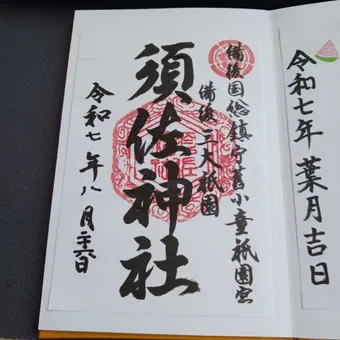 令和七年葉月吉日
備後国総鎮守旧小童祇園宮
備後三大祇園
須佐神社
令和七年八月二六日